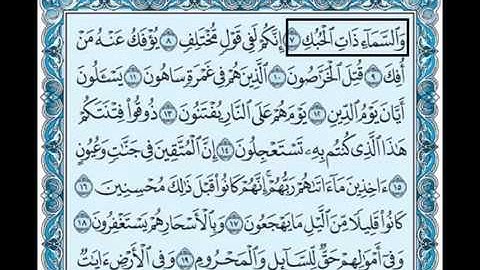 وَٱلسَّمَآءِ ذَاتِ ٱلْحُبُكِ ۝٧ إِنَّكُمْ لَفِى قَوْلٍ مُّخْتَلِفٍ ۝٨ يُؤْفَكُ عَنْهُ مَنْ
أُفِكَ ۝٩ قُتِلَ ٱلْخَرَّٰصُونَ ۝١٠ ٱلَّذِينَ هُمْ فِى غَمْرَةٍ سَاهُونَ ۝١١ يَسْـَٔلُونَ
أَيَّانَ يَوْمُ ٱلدِّينِ ۝١٢ يَوْمَ هُمْ عَلَى ٱلنَّارِ يُفْتَنُونَ ۝١٣ ذُوقُوا۟ فِتْنَتَكُمْ
هَٰذَا ٱلَّذِى كُنتُم بِهِۦ تَسْتَعْجِلُونَ ۝١٤ إِنَّ ٱلْمُتَّقِينَ فِى جَنَّٰتٍ وَعُيُونٍ
۝١٥ ءَاخِذِينَ مَآ ءَاتَىٰهُمْ رَبُّهُمْ ۚ إِنَّهُمْ كَانُوا۟ قَبْلَ ذَٰلِكَ مُحْسِنِينَ ۝١٦
كَانُوا۟ قَلِيلًا مِّنَ ٱلَّيْلِ مَا يَهْجَعُونَ ۝١٧ وَبِٱلْأَسْحَارِ هُمْ يَسْتَغْفِرُونَ ۝١٨
وَفِىٓ أَمْوَٰلِهِمْ حَقٌّ لِّلسَّآئِلِ وَٱلْمَحْرُومِ ۝١٩ وَفِى ٱلْأَرْضِ ءَايَٰتٌ